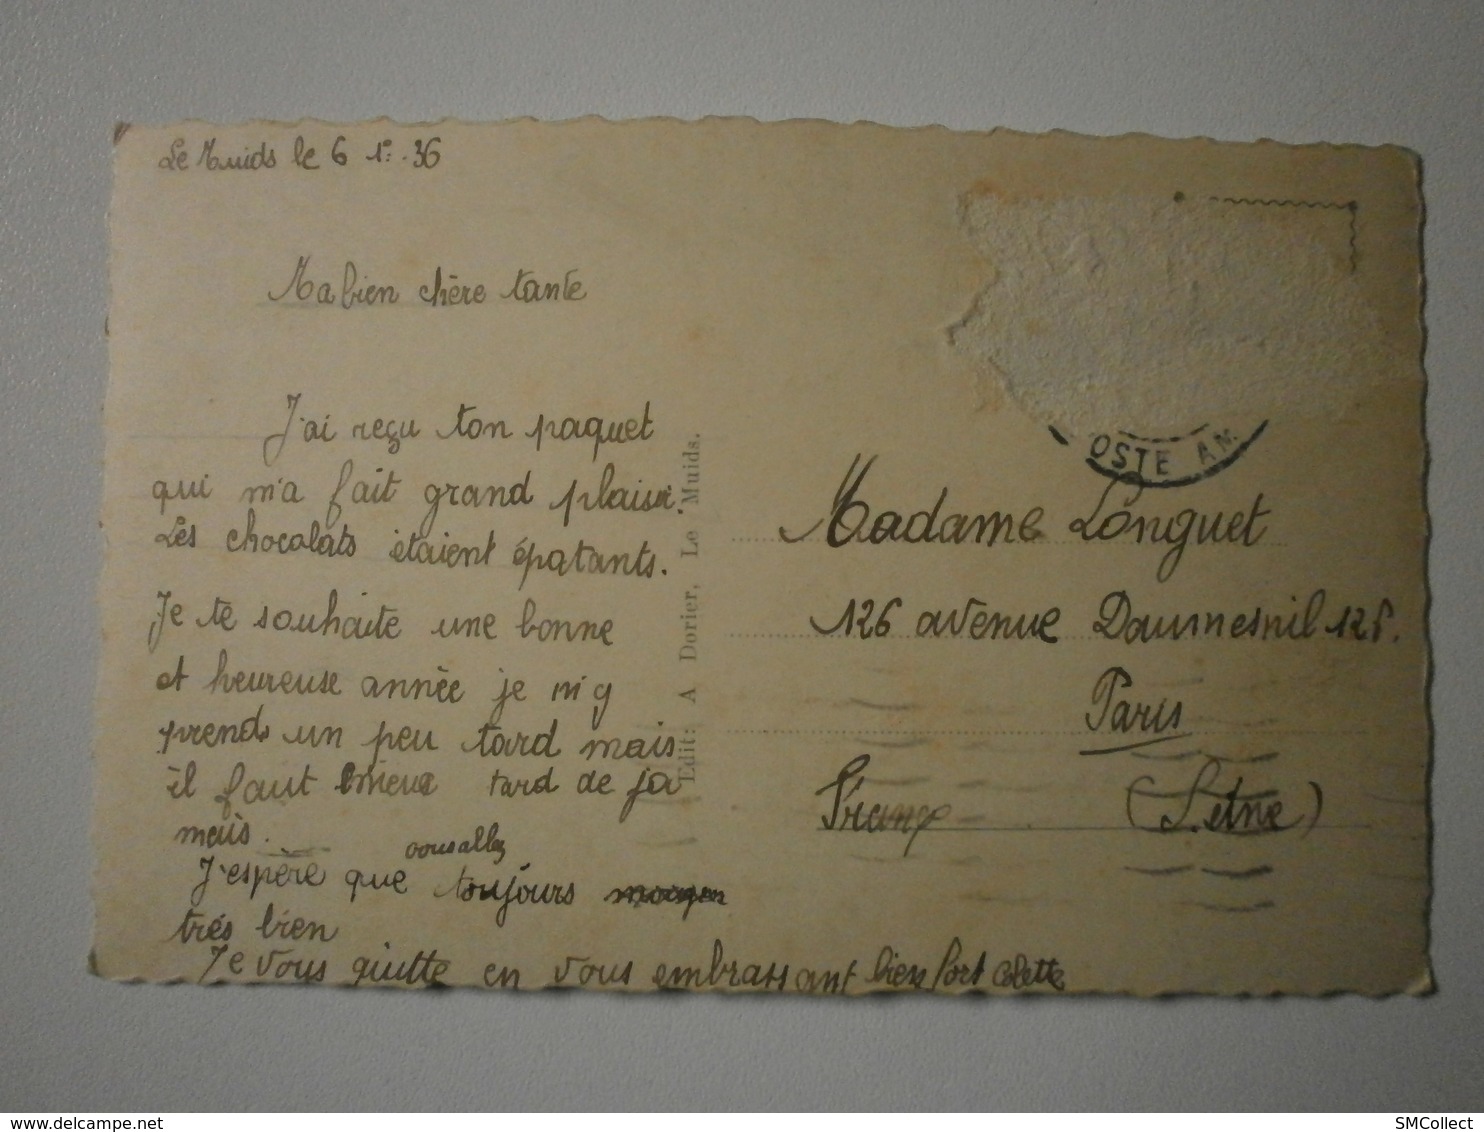 Le Muids le 6 1º. .36
Ma bien chère tante
J'ai reçu ton paquet
qui m'a fait grand plaisir.
Les chocolats étaient épatants.
Je te souhaite une bonne
et heureuse année je m'y
prends un peu tard mais
il faut mieux tard de ja
mais.
J'espère que vous allez toujours
très bien
Je vous quitte en vous embrassant bien fort Colette
Edit: A Dorier, Le Muids.
OSTE AM
Madame Longuet
126 avenue Daumesnil 126.
Paris
France (Seine)
SMCollect